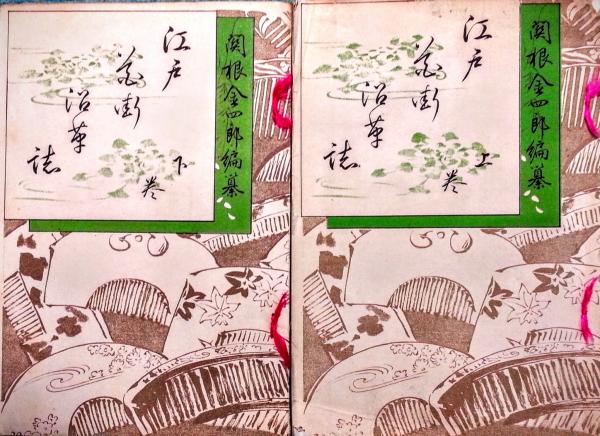 関根金四郎編纂
江戸
花街
沿革
誌
上巻
関根金四郎編纂
江戸
花街
沿革
誌
下巻